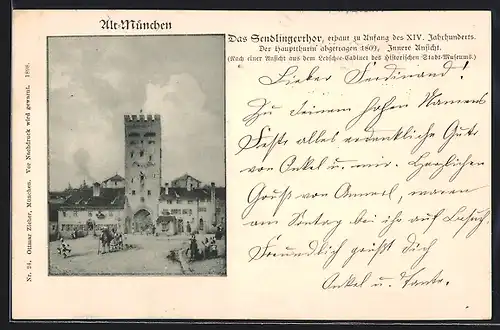 Alt-München
Das Sendlingerthor, erbaut zu Anfang des XIV. Jahrhunderts.
Der Hauptthurm abgetragen 1809, Innere Ansicht.
(Nach einer Ansicht aus dem Lebschée-Cabinet des Historischen Stadt-Museums.)
Nr. 24. Ottmar Zieher, München. Vor Nachdruck wird gewarnt. 1898.
Lieber Ferdinand!
Zu Deinem hohen Namens
Feste alles erdenkliche Gute
von Onkel u. mir. Herzlichen
Gruß von Anna, waren
am Sonntag bei ihr auf Besuch.
Freundlich grüßt Dich
Onkel u. Tante.